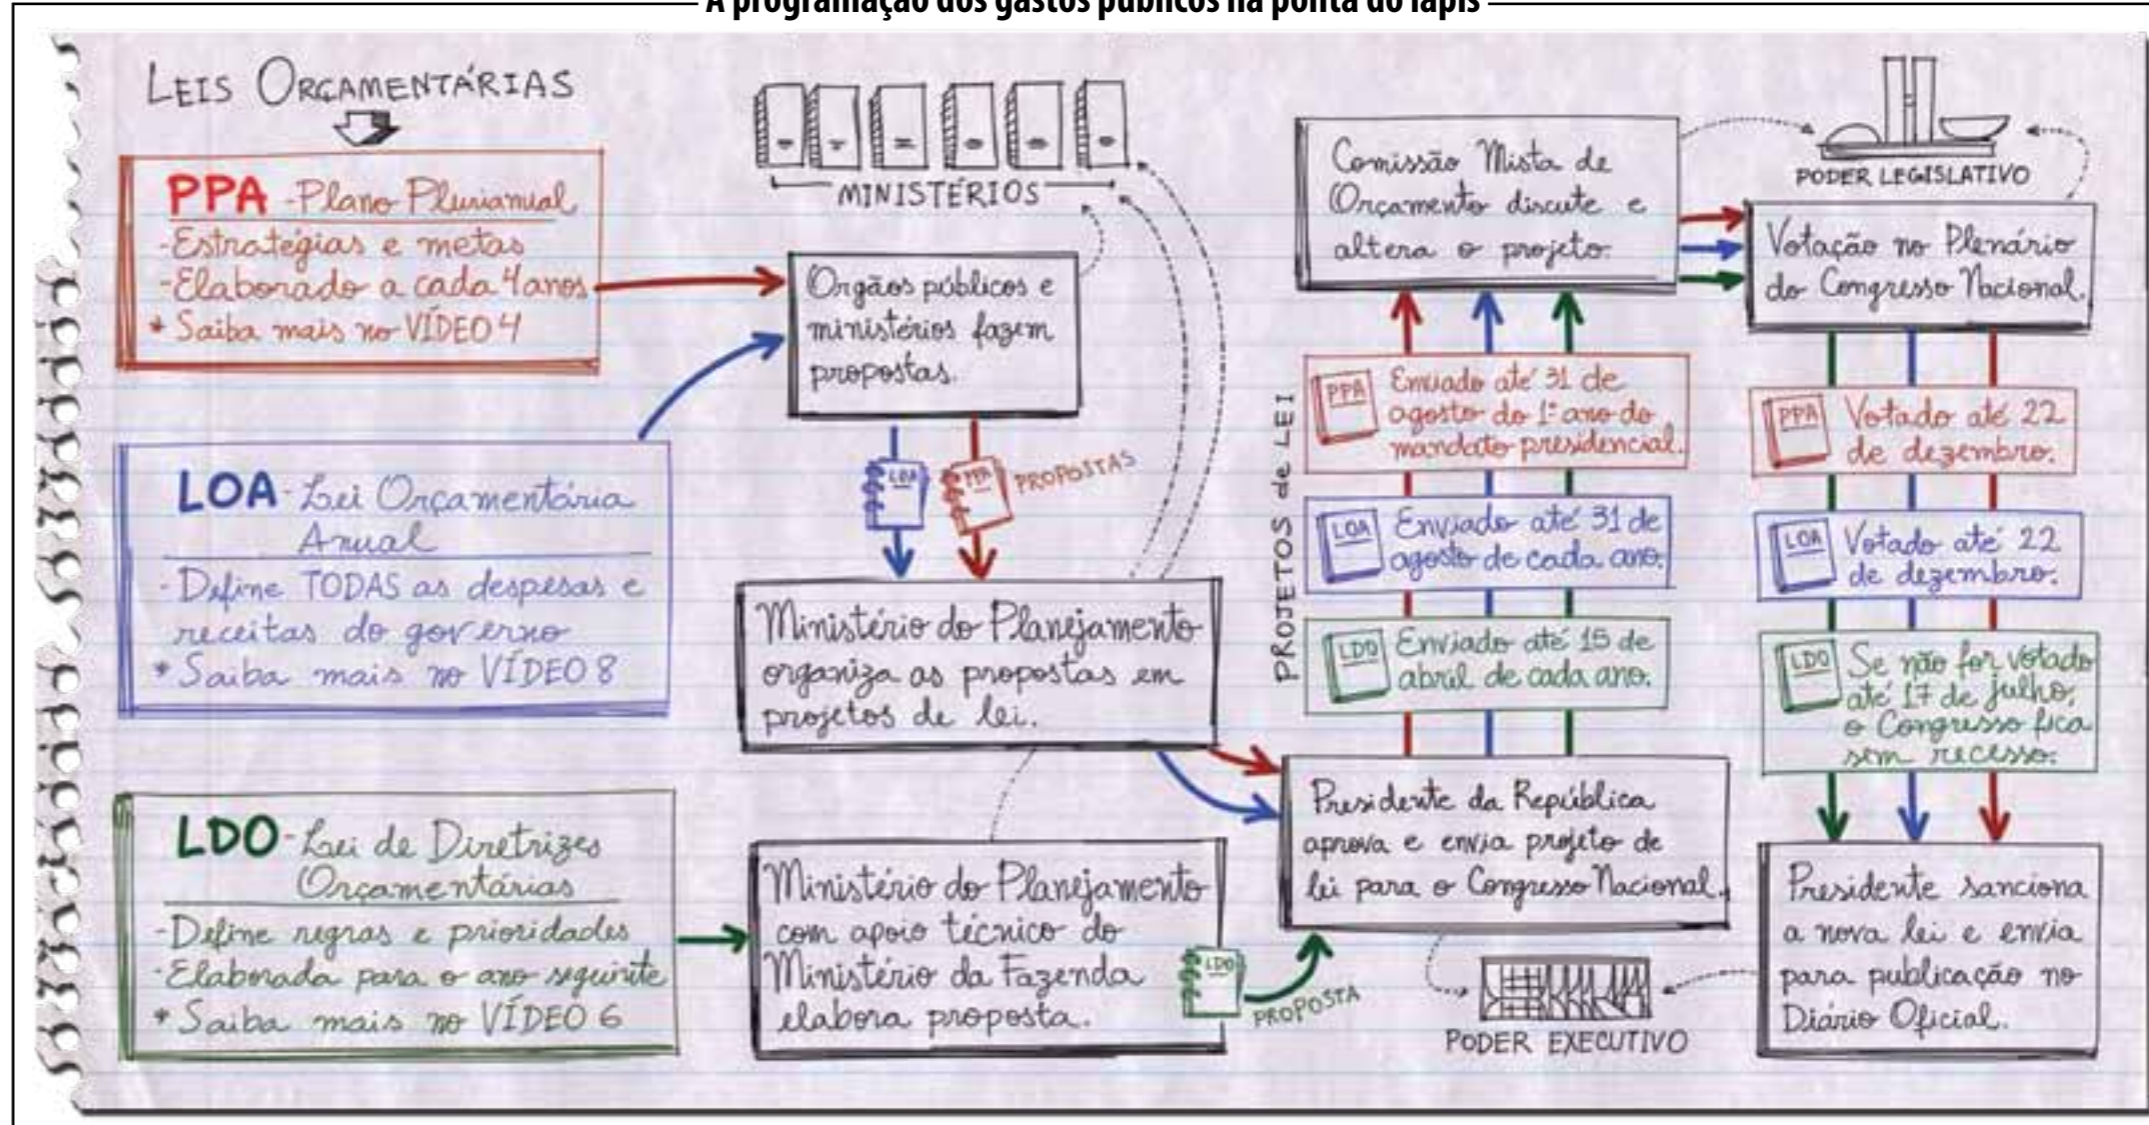 A programação dos gastos públicos na ponta do lápis
LEIS ORÇAMENTÁRIAS
PPA - Plano Plurianual
- Estratégias e metas
- Elaborado a cada 4 anos
* Saiba mais no VÍDEO 4
LOA - Lei Orçamentária
Anual
- Define TODAS as despesas e
receitas do governo
* Saiba mais no VÍDEO 8
LDO - Lei de Diretrizes
Orçamentárias
- Define regras e prioridades
- Elaborada para o ano seguinte
* Saiba mais no VÍDEO 6
MINISTÉRIOS
Orgãos públicos e
ministérios fazem
propostas.
LOA
PPA
PROPOSTAS
Ministério do Planejamento
organiza as propostas em
projetos de lei.
Ministério do Planejamento
com apoio técnico do
Ministério da Fazenda
elabora proposta.
LDO
PROPOSTA
Presidente da República
aprova e envia projeto de
lei para o Congresso Nacional.
PODER EXECUTIVO
PROJETOS de LEI
PPA
Enviado até 31 de
agosto do 1º ano do
mandato presidencial.
LOA
Enviado até 31 de
agosto de cada ano.
LDO
Enviado até 15 de
abril de cada ano.
Comissão Mista de
Orçamento discute e
altera o projeto.
PODER LEGISLATIVO
Votação no Plenário
do Congresso Nacional.
PPA
Votado até 22
de dezembro.
LOA
Votado até 22
de dezembro.
LDO
Se não for votado
até 17 de julho,
o Congresso fica
sem recesso.
Presidente sanciona
a nova lei e envia
para publicação no
Diário Oficial.